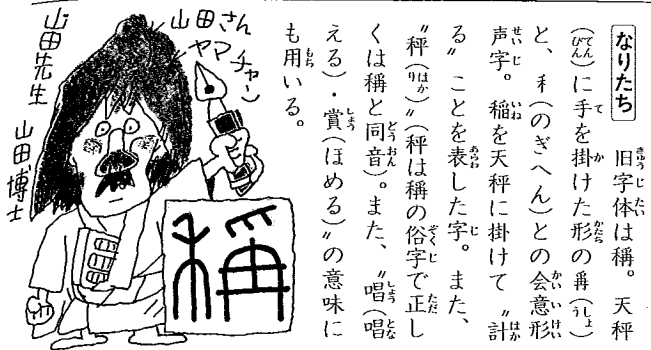 なりたち
旧字体は稱。天秤
に手を掛けた形の爯
と、禾（のぎへん）との会意形
声字。稲を天秤に掛けて〝計
る〟ことを表した字。また、
〝秤〟（秤は稱の俗字で正し
くは稱と同音）。また、〝唱（唱
える）・賞（ほめる）〟の意味に
も用いる。
山田さん
ヤマチャーン
山田先生
山田博士
稱